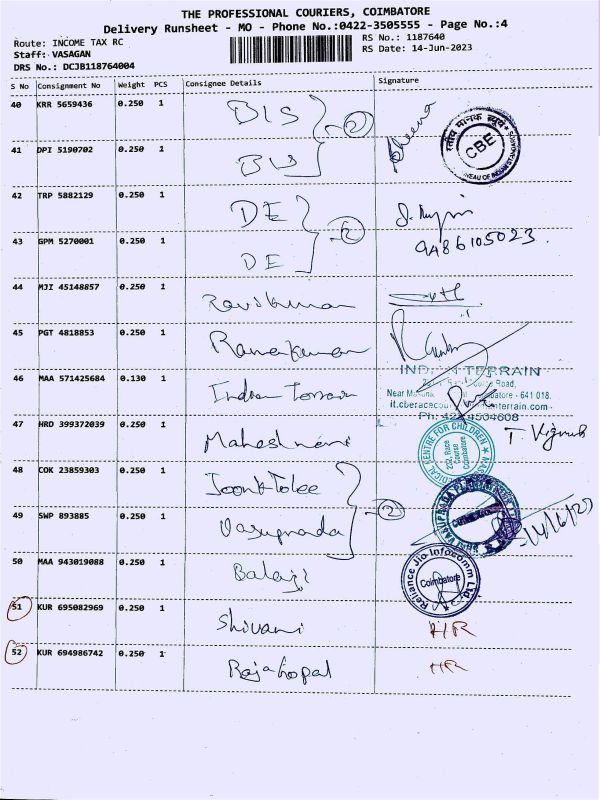 THE PROFESSIONAL COURIERS, COIMBATORE
Delivery Runsheet - MO - Phone No.:0422-3505555 - Page No.:4
Route: INCOME TAX RC
RS No.: 1187640
Staff: VASAGAN
RS Date: 14-Jun-2023
DRS No.: DCJB118764004
S No Consignment No Weight PCS Consignee Details Signature
40 KRR 5659436 0.250 1 BIS
41 DPI 5190702 0.250 1 BIS
2
CBE
42 TRP 5882129 0.250 1 DE
9486105023
43 GPM 5270001 0.250 1 DE
2
44 MJI 45148857 0.250 1 Ravikumar
45 PGT 4818853 0.250 1 Ramakumar
46 MAA 571425684 0.130 1 Indian Terrain
INDIAN TERRAIN
Road,
Near
641 018.
47 HRD 399372039 0.250 1 Maheshmani
T Vignesh
CENTRE FOR CHILDREN
232, Race
Course
Coimbatore
48 COK 23859303 0.250 1
49 SWP 893885 0.250 1 Vasuprada
2
14/6/23
50 MAA 943019088 0.250 1 Balaji
Reliance Jio Infocomm Ltd.
Coimbatore
51 KUR 695082969 0.250 1 Shivani HR
52 KUR 694986742 0.250 1 Rajagopal HR